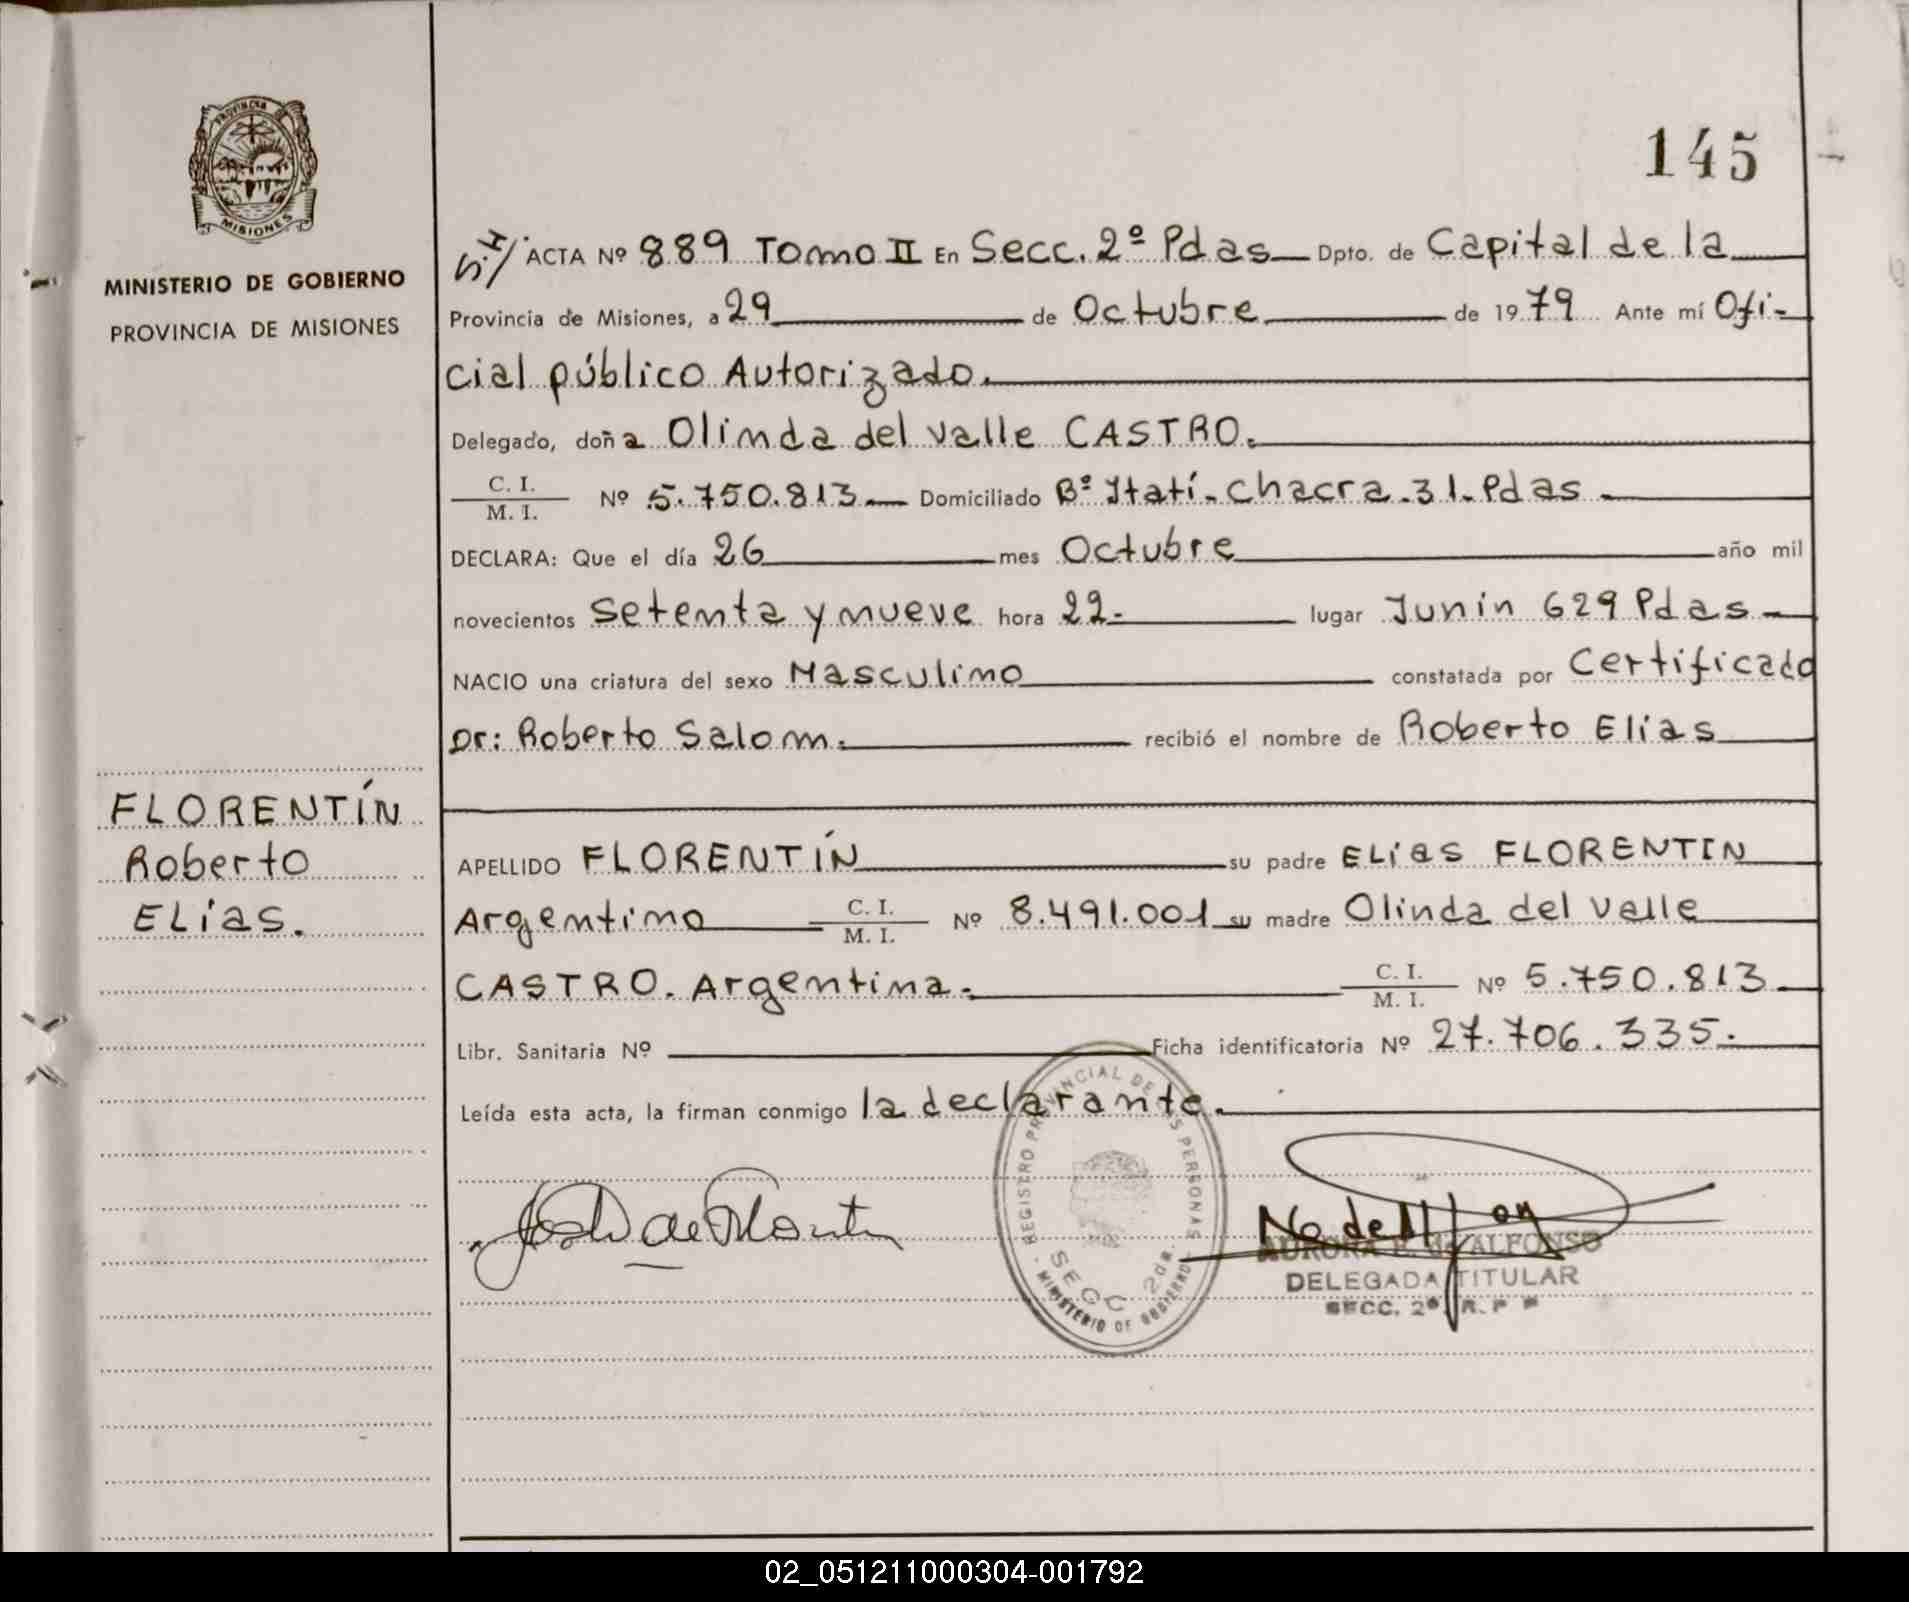 PROVINCIA
MISIONES
MINISTERIO DE GOBIERNO
PROVINCIA DE MISIONES
145
ACTA Nº 889 Tomo II En Secc. 2º Pdas Dpto. de Capital de la
Provincia de Misiones, a 29 de Octubre de 1979 Ante mí Ofi-
cial público Autorizado.
Delegado, doña Olinda del valle CASTRO.
C. I.
M. I. Nº 5.750.813 Domiciliado Bº Itatí - Chacra. 31. Pdas -
DECLARA: Que el día 26 mes Octubre año mil
novecientos Setenta y nueve hora 22.- lugar Junín 629 Pdas -
NACIO una criatura del sexo Masculino constatada por Certificado
Dr: Roberto Salom. recibió el nombre de Roberto Elías
FLORENTÍN
Roberto
ELías.
APELLIDO FLORENTÍN su padre ELías FLORENTIN
Argentino C. I.
M. I. Nº 8.491.001 su madre Olinda del valle
CASTRO. Argentina. C. I.
M. I. Nº 5.750.813
Libr. Sanitaria Nº Ficha identificatoria Nº 27.706.335.
Leída esta acta, la firman conmigo la declarante.
REGISTRO PROVINCIAL DE LAS PERSONAS
SECC 2da.
MINISTERIO DE GOBIERNO
AURORA E. de ALFONSO
DELEGADA TITULAR
SECC. 2ª R. P P
02_051211000304-001792